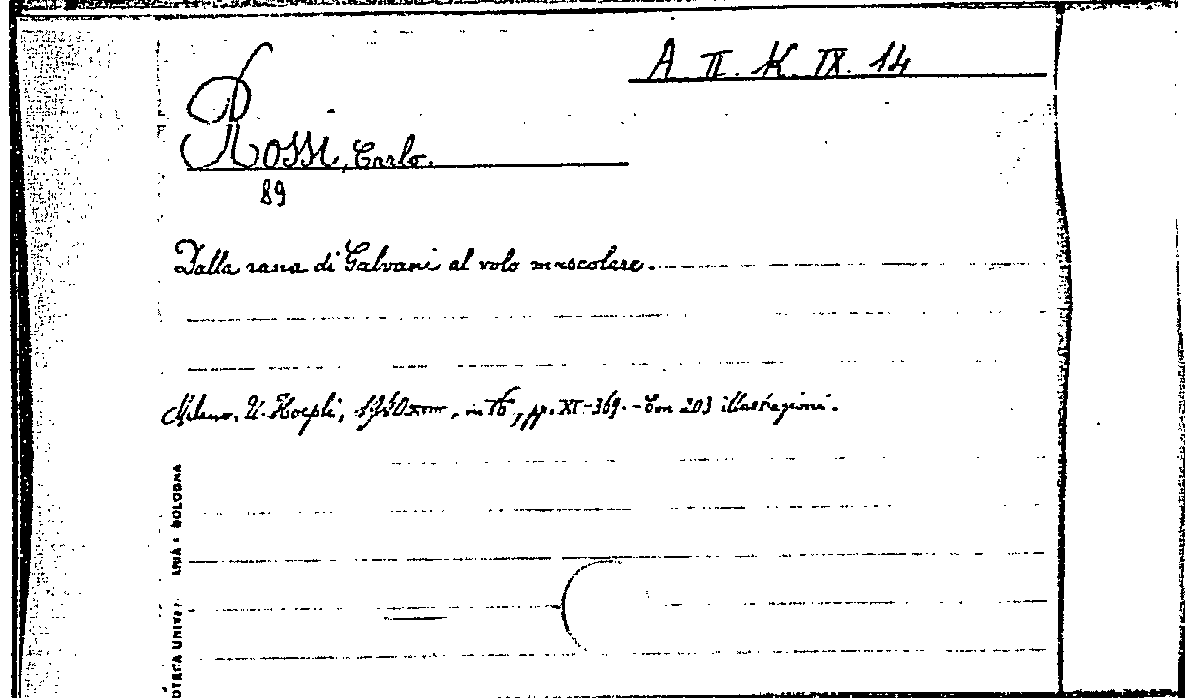 A II. K. IX. 14
Rossi, Carlo.
89
Dalla rana di Galvani al volo muscolare.
Milano, U. Hoepli, 1940 XVIII, in 16°, pp. XI-369. - Con 203 illustrazioni.
OTECA UNIVER BOLOGNA